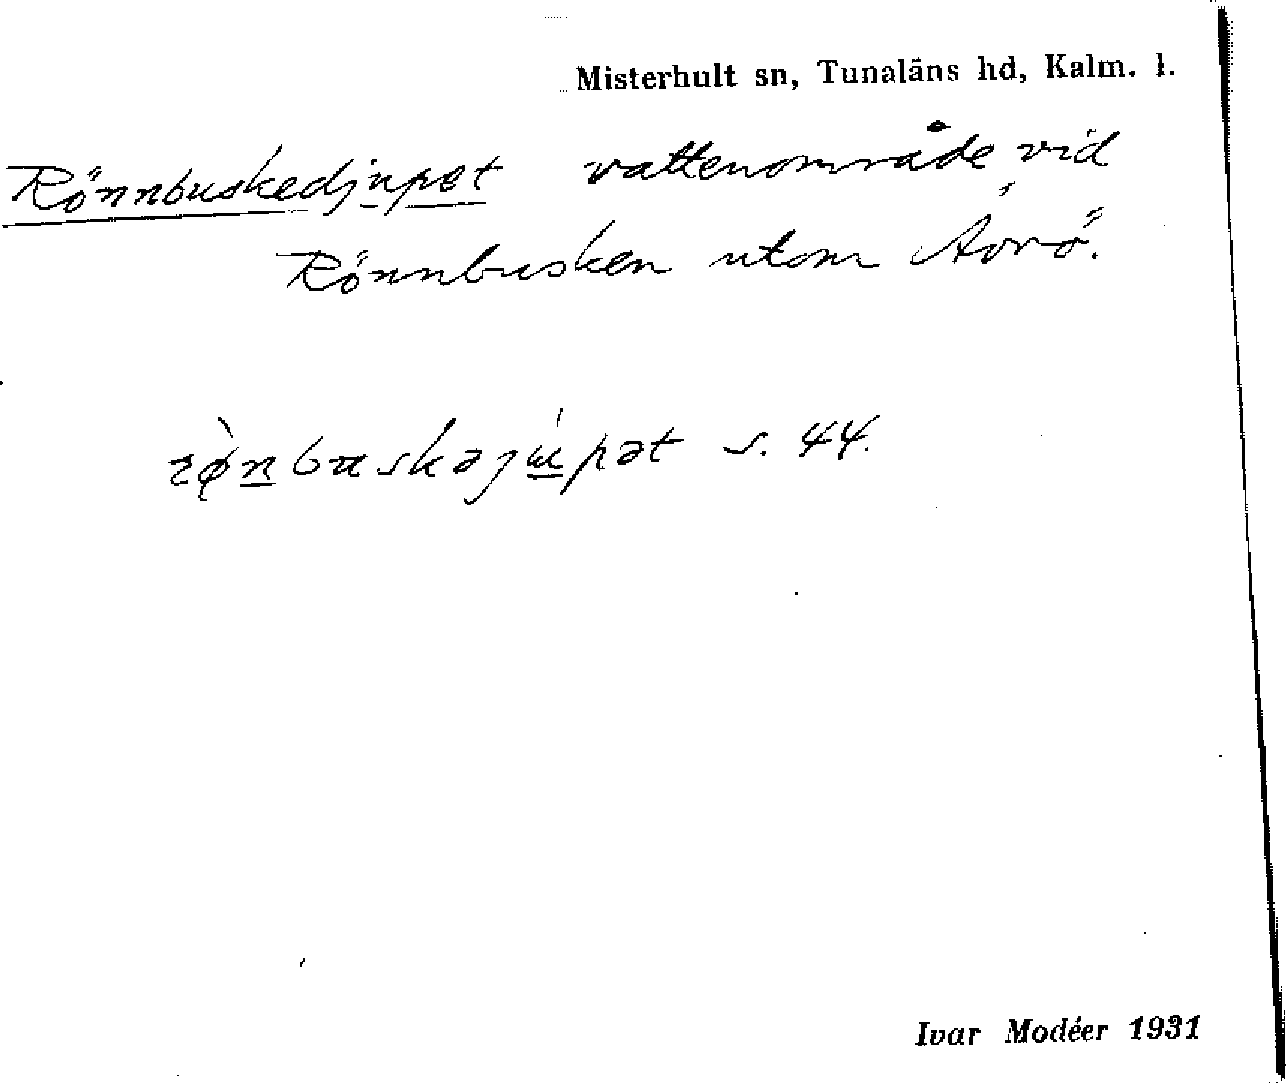 Misterhult sn, Tunaläns hd, Kalm. l.
Rönnbuskedjupet vattenområde vid
Rönnbusken utom Ävrö.
s. 44.
Ivar Modéer 1931